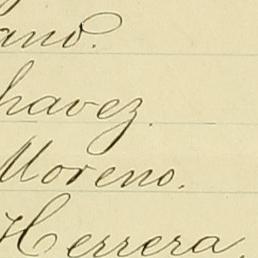 ano.
havez.
Moreno.
Herrera.